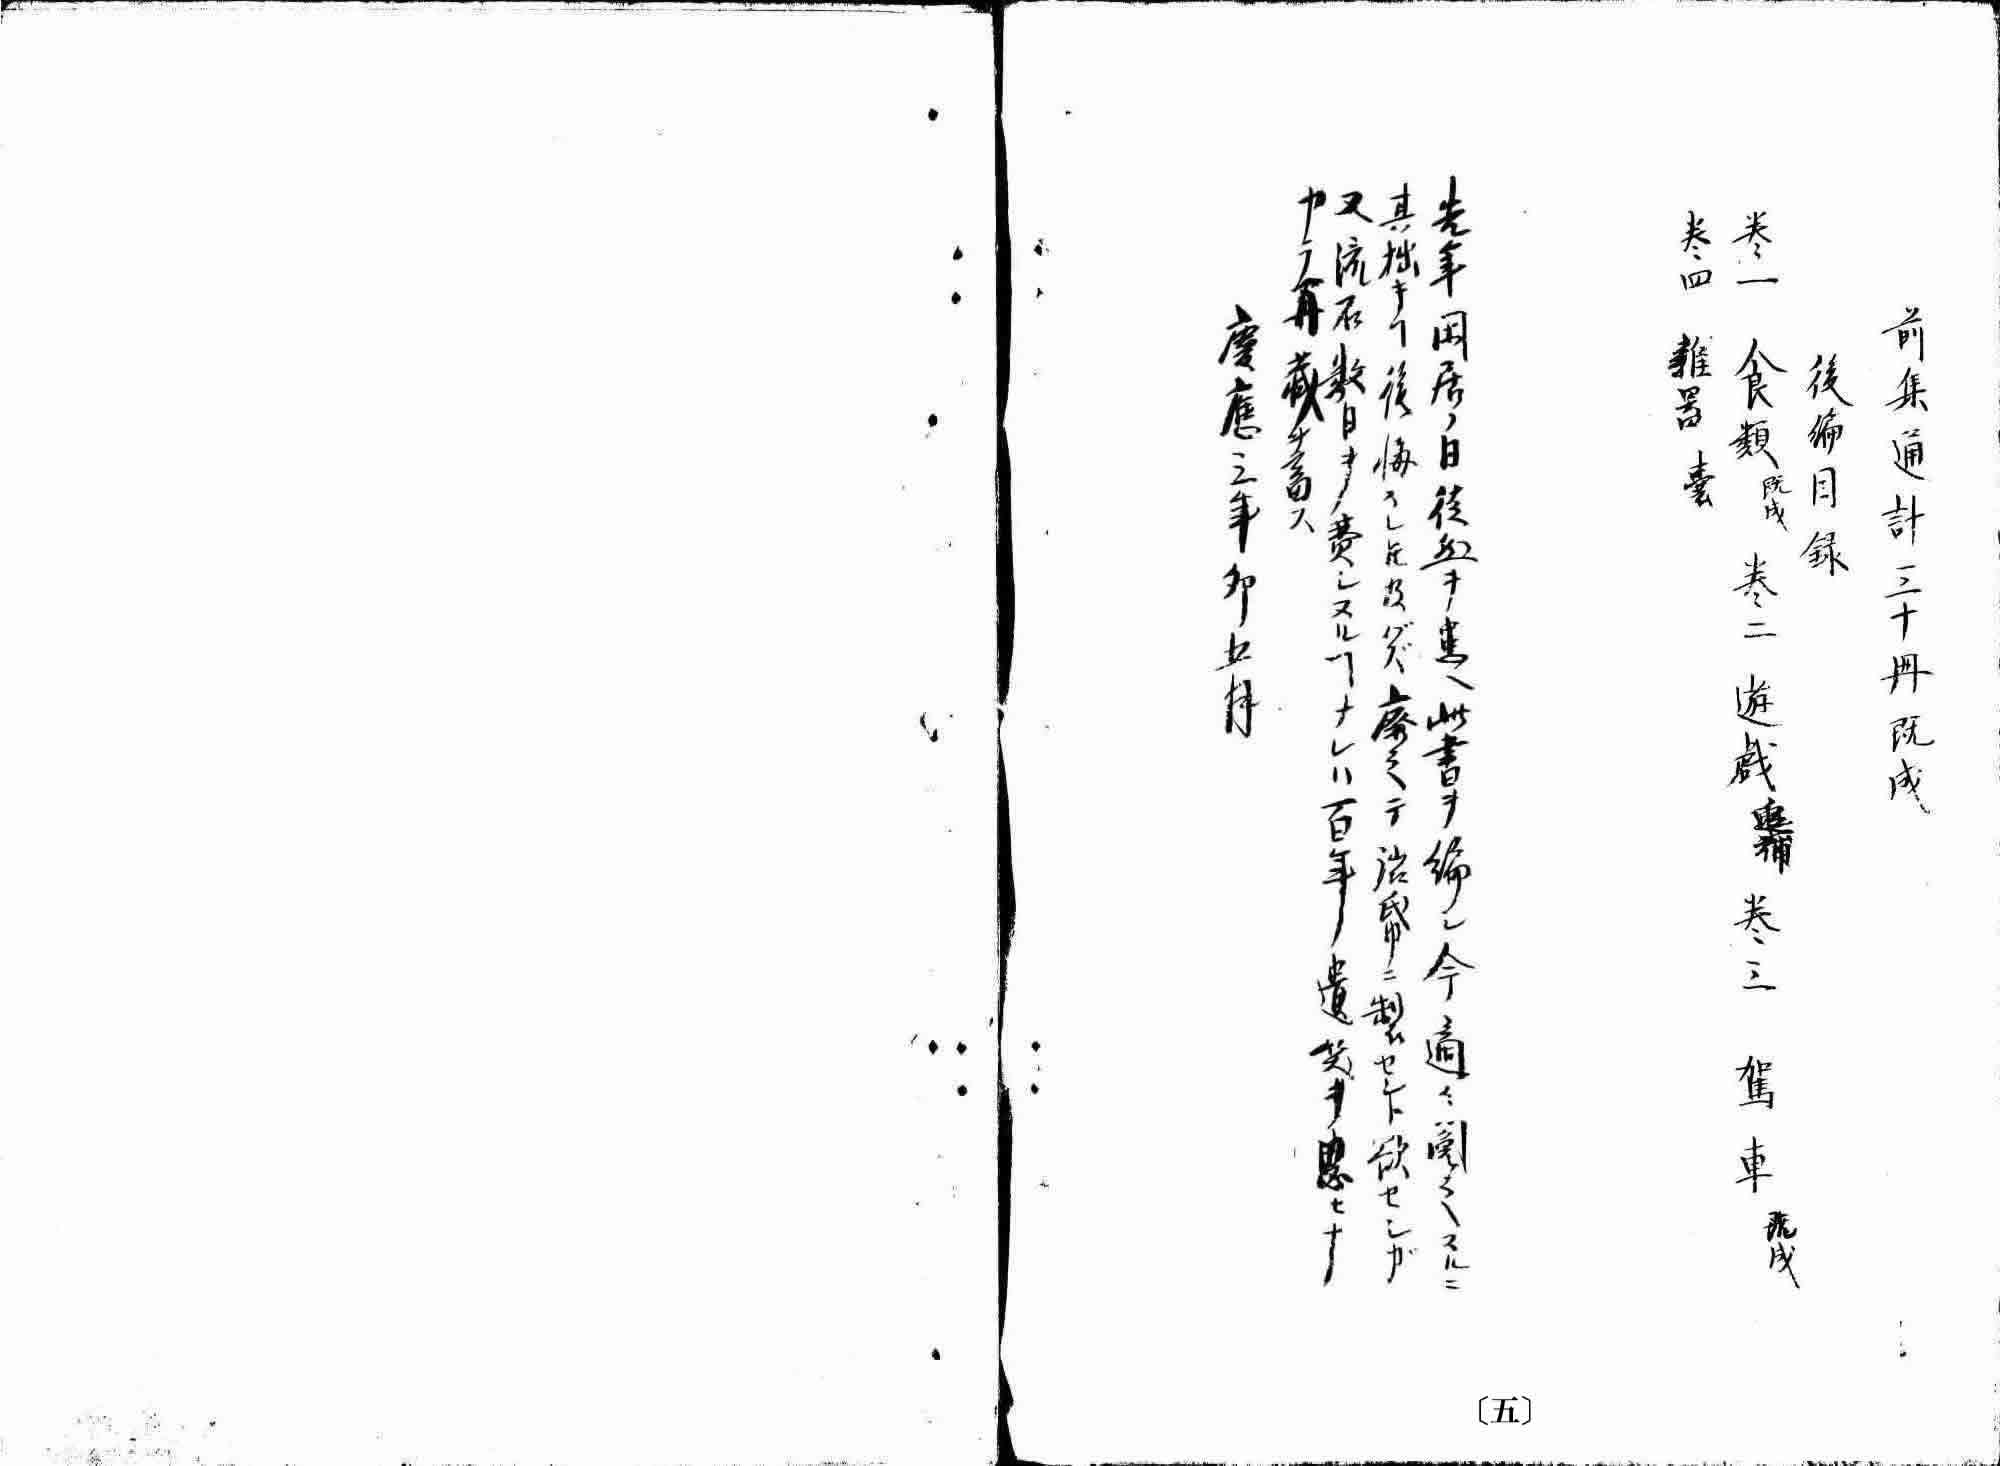 前集通計三十冊既成
後編目録
巻一 食類 既成 巻二 遊戯 追補 巻三 駕車 既成
巻四 雑器 嚢
先年閑居ノ日徒然ヲ患ヘ此書ヲ編シ今適々閲之スルニ
其拙キヿ後悔スレ𪜈及バズ廃之テ浴帋ニ製セント欲セシガ
又流石数日ヲ費シヌルヿナレハ百年ノ遺笑ヲ患セナ
カラ再蔵畜ス
慶應三年卯五月
〔五〕